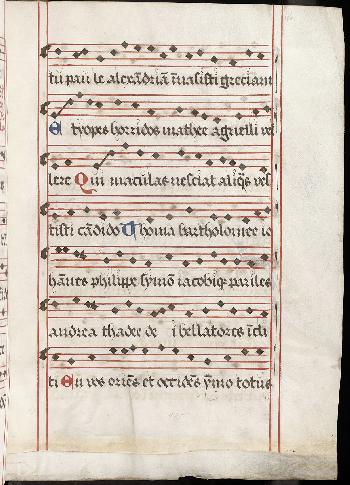 tu paule alexādriā ītuasisti greciam
Etyopes horridos mathee agnelli vel
lere Qui maculas nesciat aliq̄s ves
tisti cādido Thoma bartholomee io
hānes philippe symō iacobiq̢ pariles
andrea thadee de i bellatores īcli
ti En vos oriēs et occidēs ymo totus